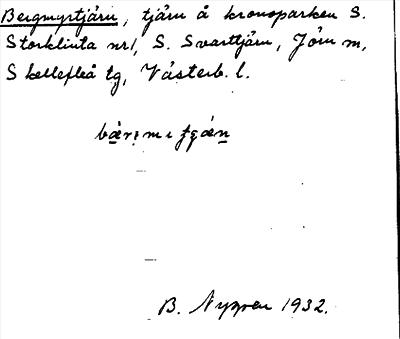 Bergmyrtjärn, tjärn å kronoparken S.
Storklinta nr 1, S. Svarttjärn, Jörn m,
Skellefteå tg, Västerb. l.
B. Nygren 1932.